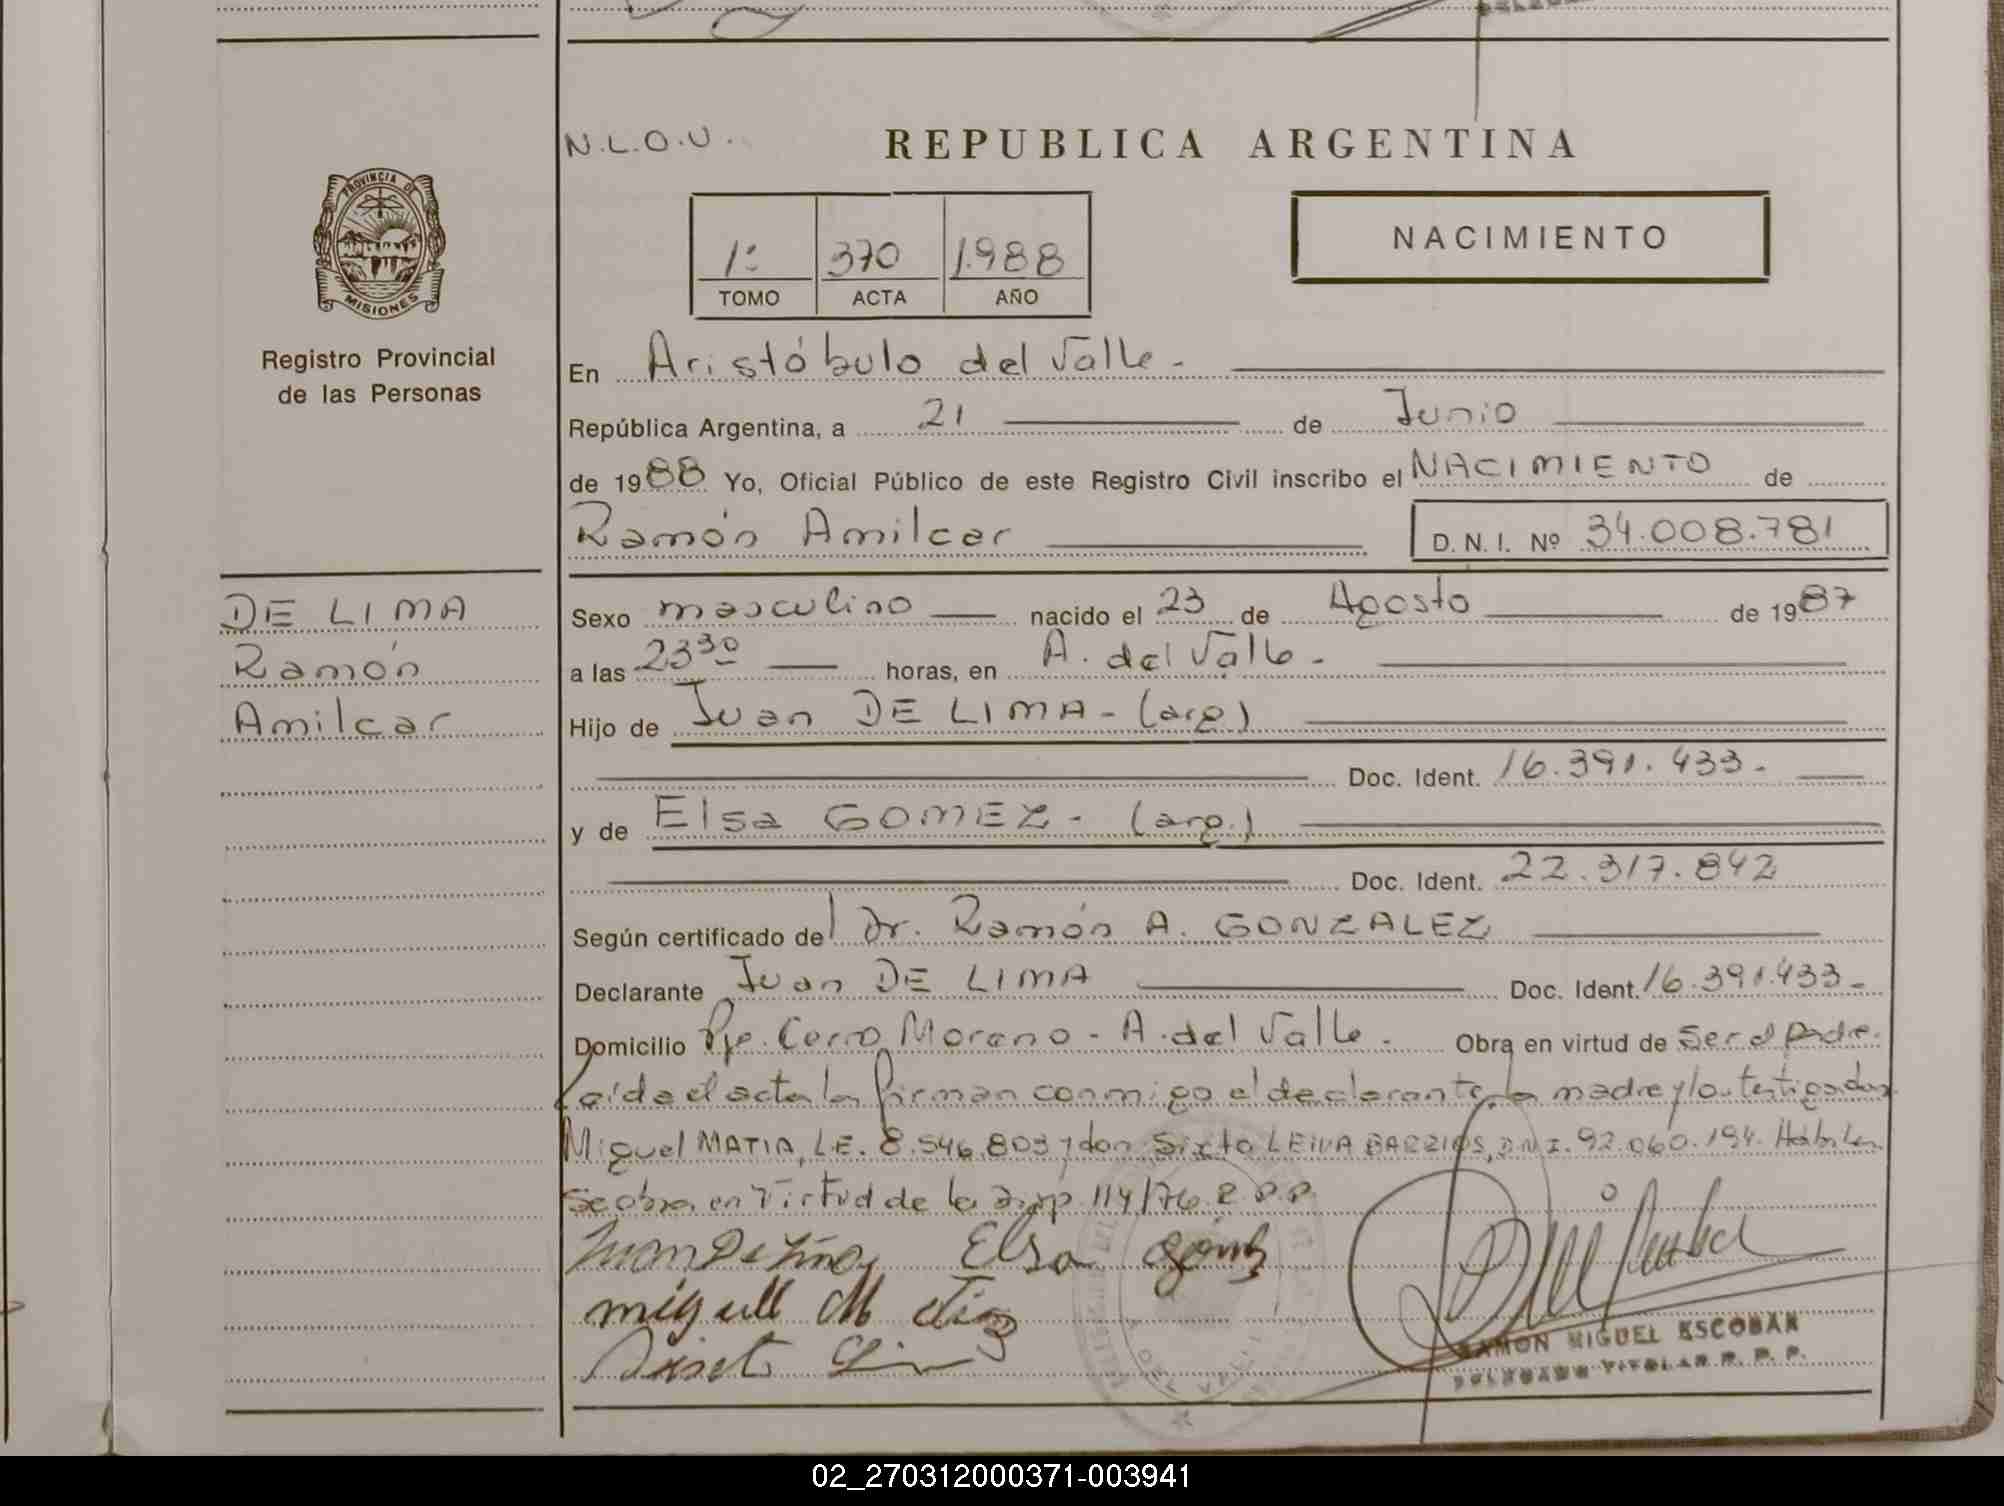 N.L.O.U.
REPUBLICA ARGENTINA
PROVINCIA DE
MISIONES
1º 370 1.988
TOMO ACTA AÑO
NACIMIENTO
Registro Provincial
de las Personas
En Aristóbulo del Valle.-
República Argentina, a 21 de Junio
de 1988 Yo, Oficial Público de este Registro Civil inscribo el NACIMIENTO de
Ramón Amilcar D.N.I. Nº 34.008.781
DE LIMA
Ramón
Amilcar
Sexo masculino nacido el 23 de Agosto de 1987
a las 23 30 horas, en A. del Valle.-
Hijo de Juan DE LIMA - (arg)
Doc. Ident. 16.391.433.-
y de Elsa GOMEZ - (arg.)
Doc. Ident. 22.317.842
Según certificado del Dr. Ramón A. GONZALEZ
Declarante Juan DE LIMA Doc. Ident. 16.391.433.-
Domicilio Pje. Cerro Moreno - A. del Valle.- Obra en virtud de ser el padre.
Leída el acta la firman conmigo el declarante, la madre y los testigos don
Miguel MATIA, L.E. 8.546.803 y don Sixto LEIVA BARRIOS, D.N.I. 92.060.194. Hábiles
Se obra en Virtud de la disp. 114/76. R.P.P.
Juan De Lima Elsa Gómez
RAMON MIGUEL ESCOBAR
DELEGADO TITULAR R. P. P.
02_270312000371-003941